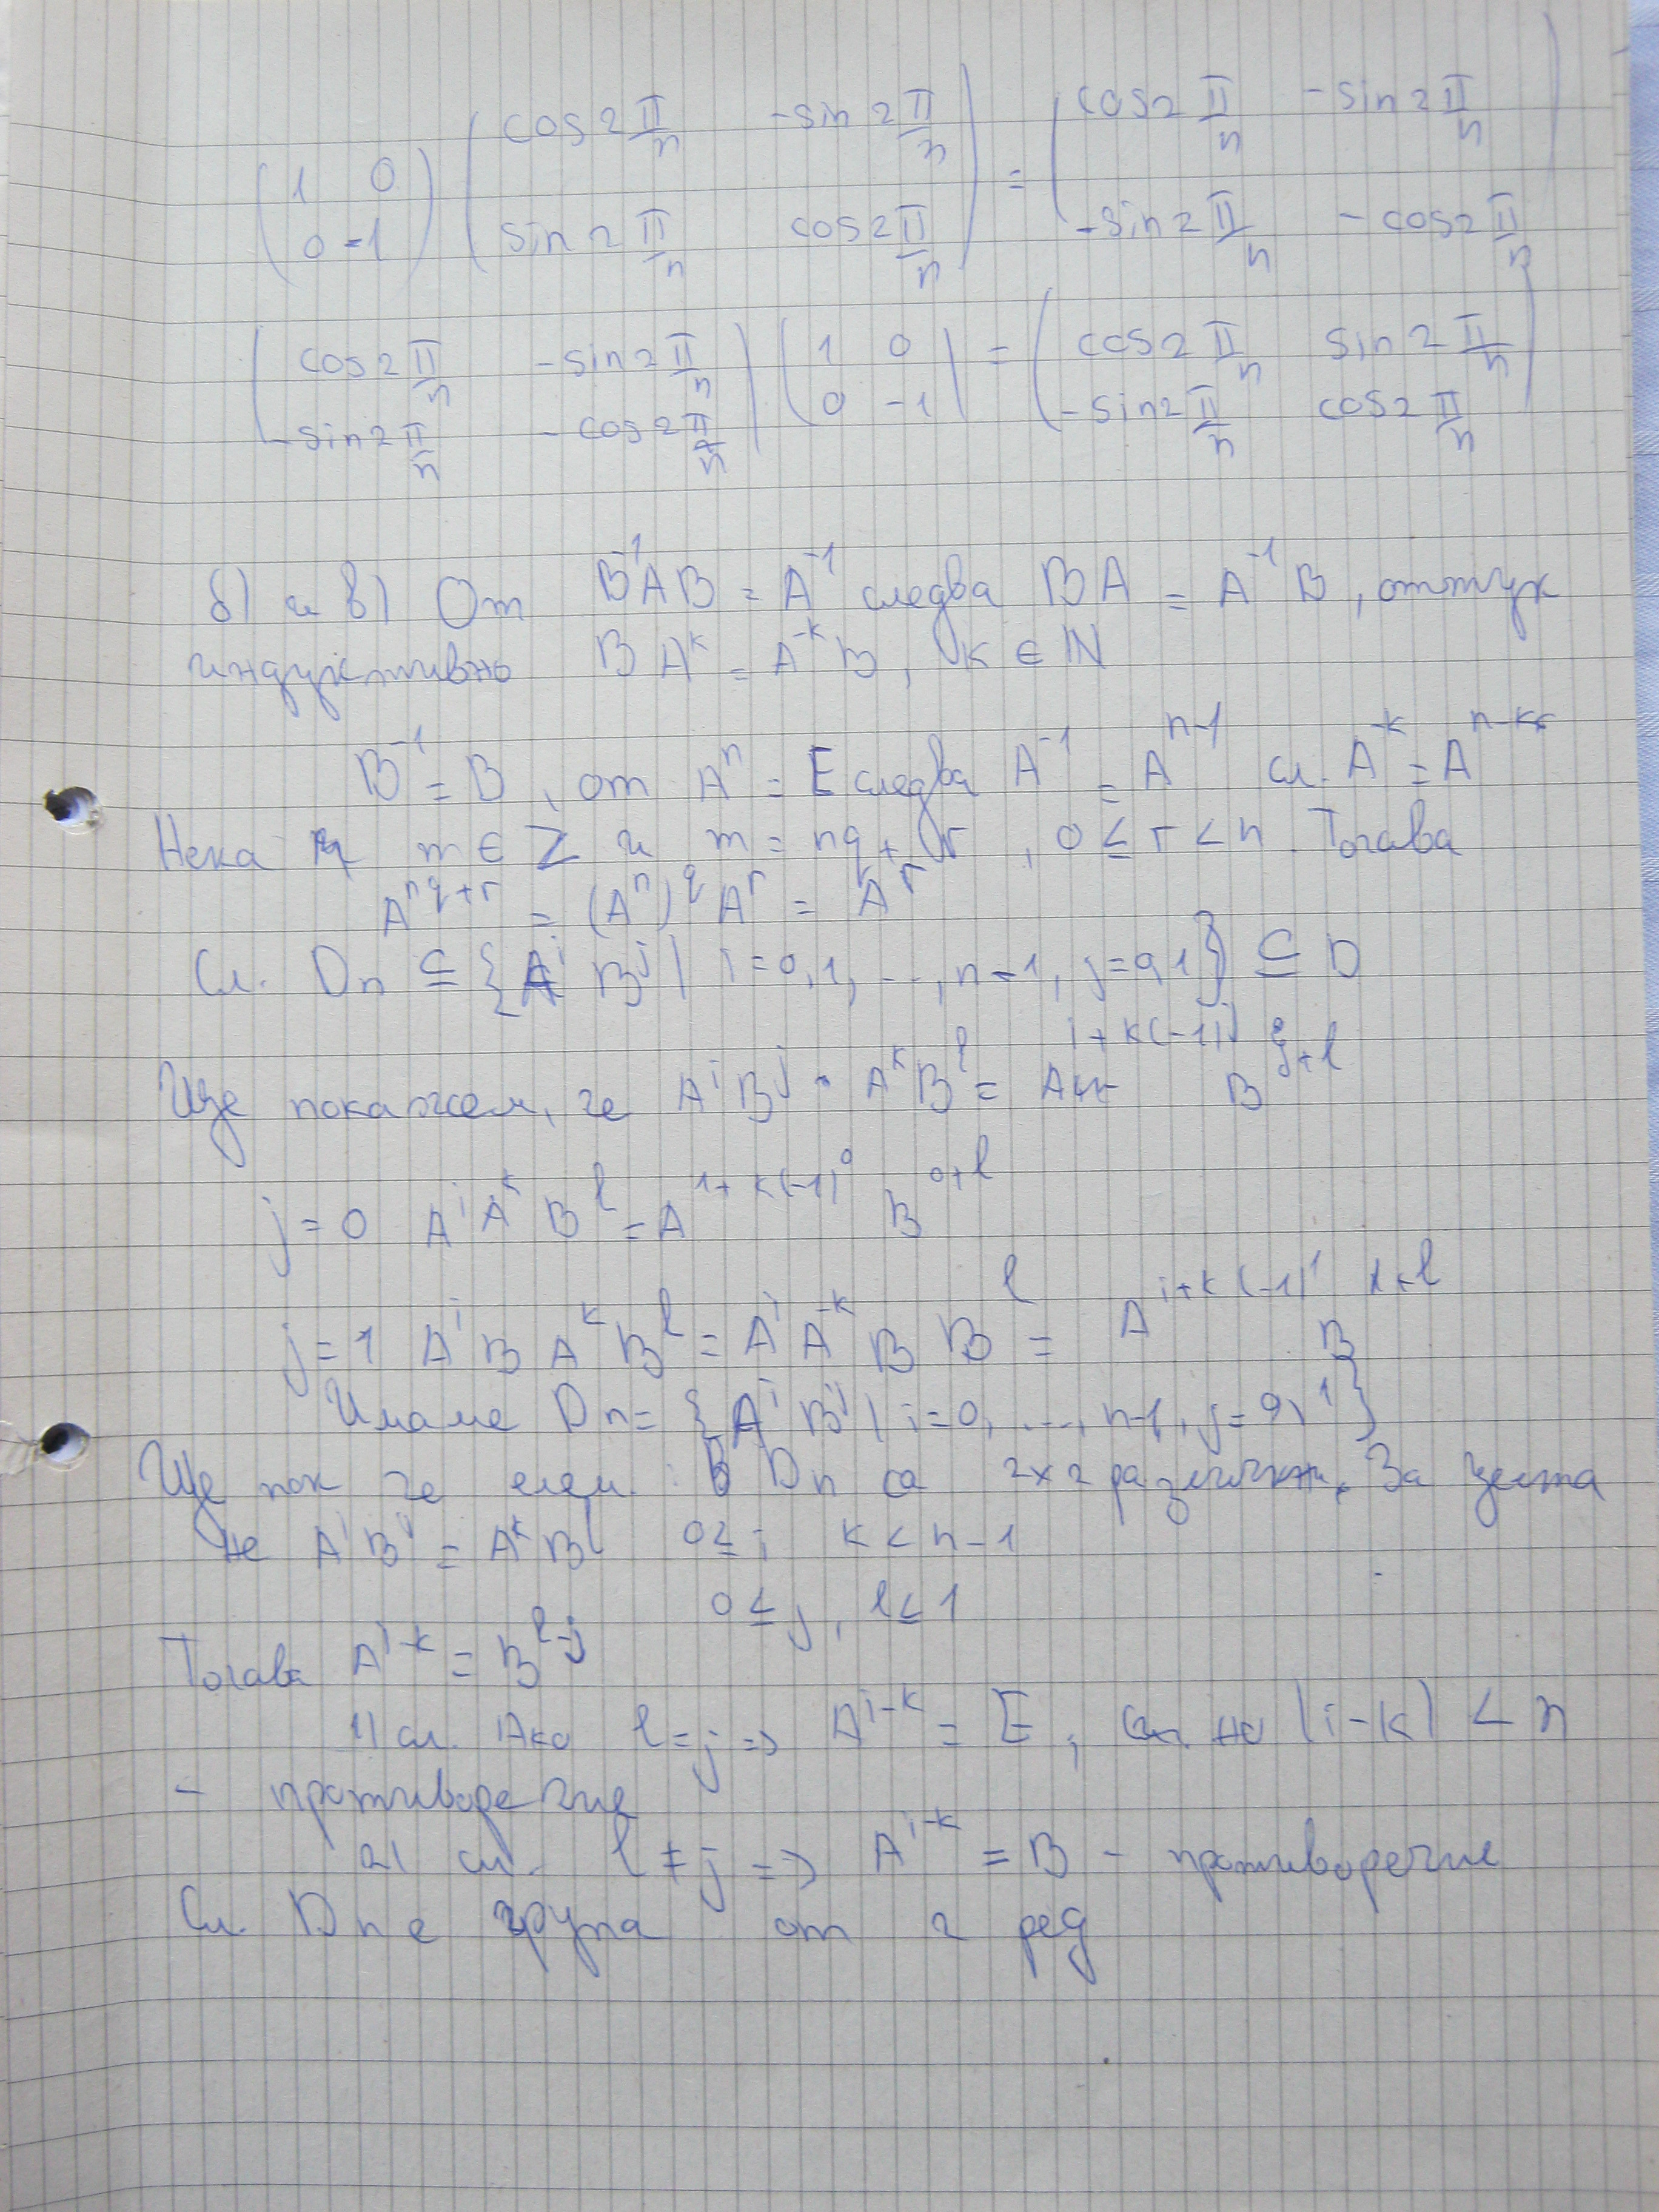 (1 0 / 0 -1) (cos2π/n -sin2π/n / sin2π/n cos2π/n) = (cos2π/n -sin2π/n / -sin2π/n -cos2π/n)
(cos2π/n -sin2π/n / -sin2π/n -cos2π/n) (1 0 / 0 -1) = (cos2π/n sin2π/n / -sin2π/n cos2π/n)
б) и в) От B⁻¹AB = A⁻¹ следва BA = A⁻¹B, оттук
индуктивно BA^k = A^-k B, k ∈ ℕ
B⁻¹ = B, от A^n = E следва A⁻¹ = A^n-1 сл. A^-k = A^n-k
Нека m ∈ Z и m = nq + r, 0 ≤ r < n. Тогава
A^nq+r = (A^n)^q A^r = A^r
Сл. Dn ⊆ {A^i B^j | i=0,1,...,n-1, j=0,1} ⊆ D
Ще покажем, че A^i B^j · A^k B^l = A^i+k(-1)^j B^j+l
j=0 A^i A^k B^l = A^i+k(-1)^0 B^0+l
j=1 A^i B A^k B^l = A^i A^-k B B^l = A^i+k(-1)^1 B^1+l
Имаме Dn = {A^i B^j | i=0,...,n-1, j=0,1}
Ще пок че елем. в Dn са 2x2 различни. За
че A^i B^j = A^k B^l 0≤ i k < n-1
0 ≤ j, l ≤ 1
Тогава A^i-k = B^l-j
1) сл. Ако l=j => A^i-k = E, но |i-k| < n
- противоречие
2) сл. l ≠ j => A^i-k = B - противоречие
Сл. Dn е група от 2 ред